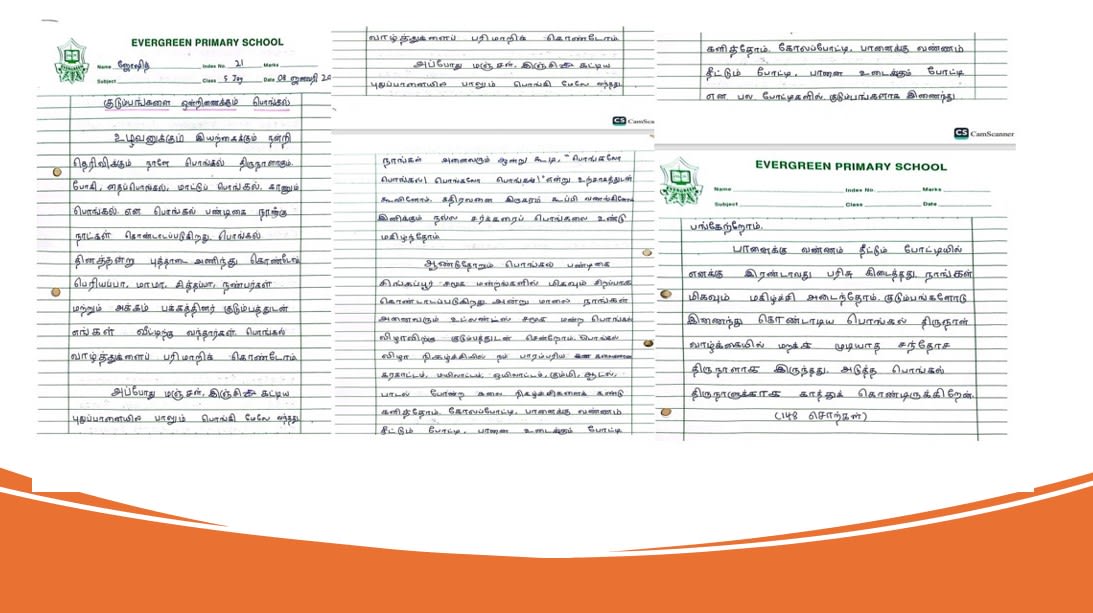 EVERGREEN PRIMARY SCHOOL
Name ஜோஷித் Index No 21 Marks
Subject Class 5 Joy Date 08 ஜனவரி 20
குடும்பங்களை ஒன்றிணைக்கும் பொங்கல்
உழவனுக்கும் இயற்கைக்கும் நன்றி
தெரிவிக்கும் நாளே பொங்கல் திருநாளாகும்.
போகி, தைப்பொங்கல், மாட்டுப் பொங்கல், காணும்
பொங்கல் என பொங்கல் பண்டிகை நான்கு
நாட்கள் கொண்டாடப்படுகிறது. பொங்கல்
தினத்தன்று புத்தாடை அணிந்து கொண்டேன்.
பெரியப்பா, மாமா, சித்தப்பா, நண்பர்கள்
மற்றும் அக்கம் பக்கத்தினர் குடும்பத்துடன்
எங்கள் வீட்டிற்கு வந்தார்கள். பொங்கல்
வாழ்த்துகளைப் பரிமாறிக் கொண்டோம்.
அப்போது மஞ்சள், இஞ்சி கட்டிய
புதுப்பானையில் பாலும் பொங்கி மேலே வந்தது.
வாழ்த்துகளைப் பரிமாறிக் கொண்டோம்.
அப்போது மஞ்சள், இஞ்சி கட்டிய
புதுப்பானையில் பாலும் பொங்கி மேலே வந்தது.
CS CamSca
நாங்கள் அனைவரும் ஒன்று கூடி, "பொங்கலோ
பொங்கல்! பொங்கலோ பொங்கல்!" என்று உற்சாகத்துடன்
கூவினோம். கதிரவனை இருகரம் கூப்பி வணங்கினோம்.
இனிக்கும் நல்ல சர்க்கரைப் பொங்கலை உண்டு
மகிழ்ந்தோம்.
ஆண்டுதோறும் பொங்கல் பண்டிகை
சிங்கப்பூர் சமூக மன்றங்களில் மிகவும் சிறப்பாக
கொண்டாடப்படுகிறது. அன்று மாலை நாங்கள்
அனைவரும் உட்லண்ட்ஸ் சமூக மன்ற பொங்கல்
விழாவிற்கு குடும்பத்துடன் சென்றோம். பொங்கல்
விழா நிகழ்ச்சியில் நம் பாரம்பரிய
கரகாட்டம், மயிலாட்டம், ஒயிலாட்டம், கும்மி, ஆடல்,
பாடல் போன்ற கலை நிகழ்ச்சிகளைக் கண்டு
களித்தோம். கோலப்போட்டி, பானைக்கு வண்ணம்
தீட்டும் போட்டி, பானை உடைக்கும் போட்டி
களித்தோம். கோலப்போட்டி, பானைக்கு வண்ணம்
தீட்டும் போட்டி, பானை உடைக்கும் போட்டி
என பல போட்டிகளில் குடும்பங்களாக இணைந்து
CS CamScanner
EVERGREEN PRIMARY SCHOOL
Name Index No Marks
Subject Class Date
பங்கேற்றோம்.
பானைக்கு வண்ணம் தீட்டும் போட்டியில்
எனக்கு இரண்டாவது பரிசு கிடைத்தது. நாங்கள்
மிகவும் மகிழ்ச்சி அடைந்தோம். குடும்பங்களோடு
இணைந்து கொண்டாடிய பொங்கல் திருநாள்
வாழ்க்கையில் மறக்க முடியாத சந்தோச
திருநாளாக இருந்தது. அடுத்த பொங்கல்
திருநாளுக்காக காத்துக் கொண்டிருக்கிறேன்.
(148 சொற்கள்)